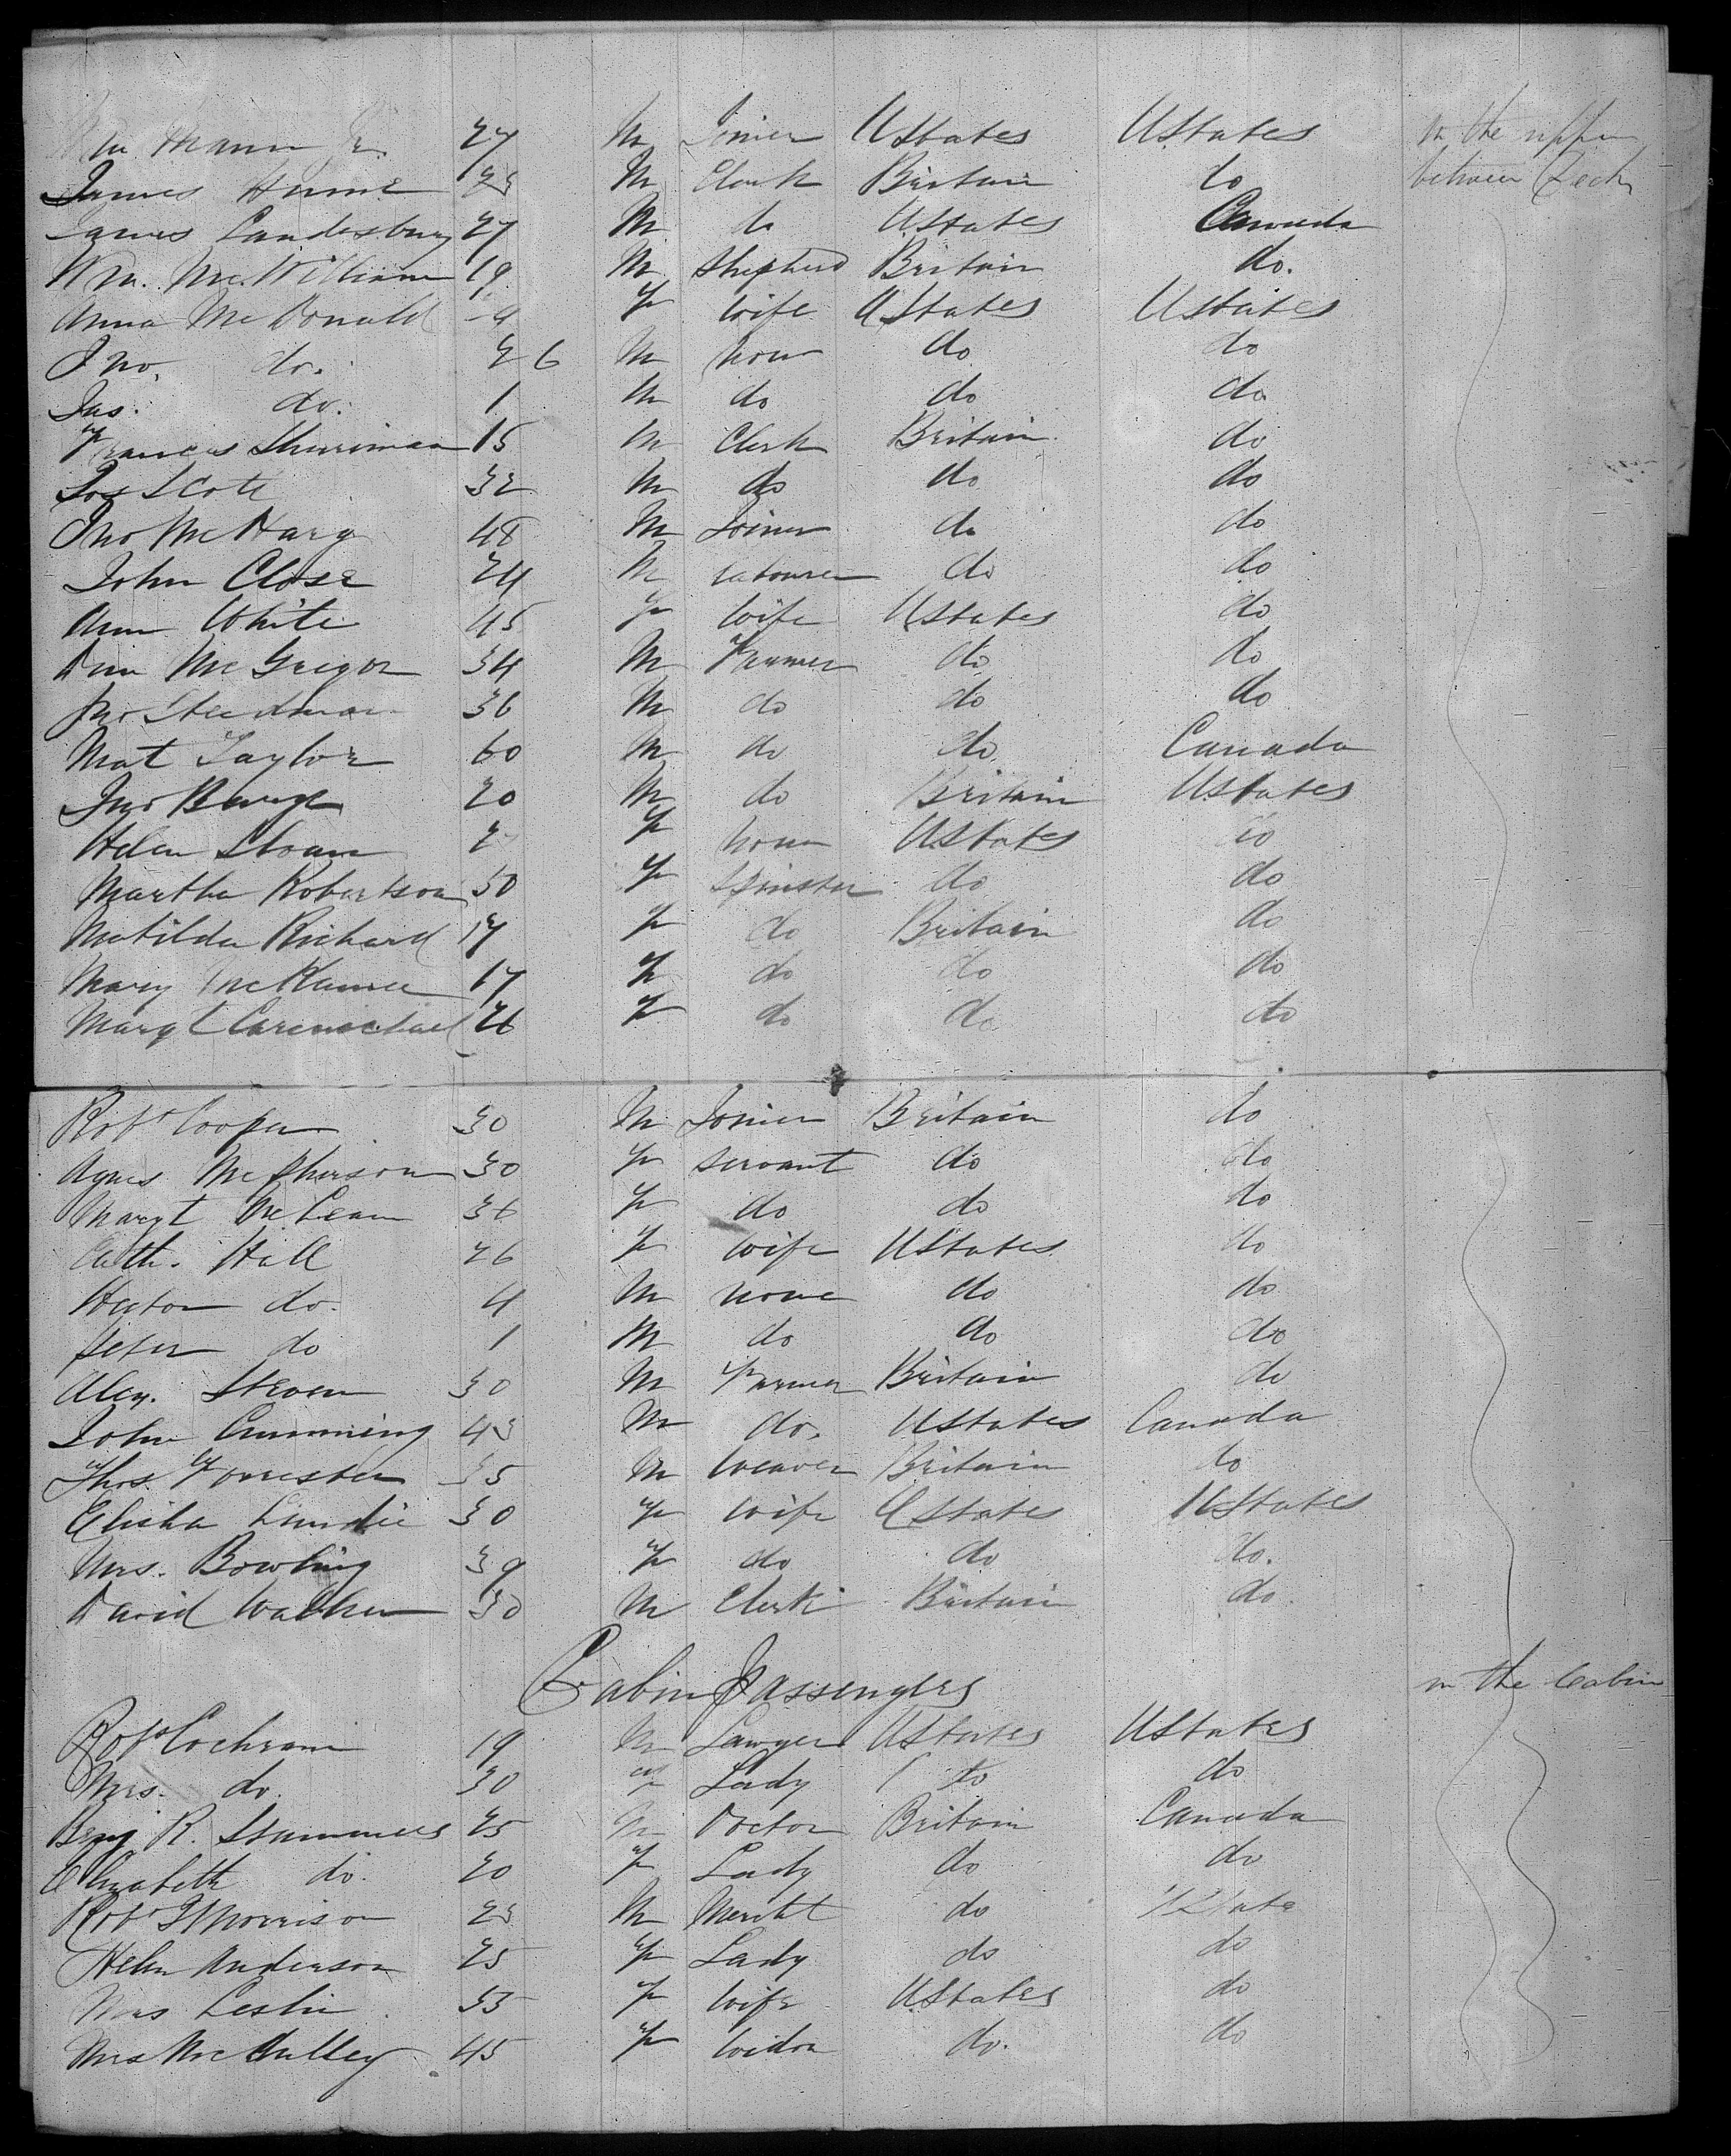 Wm Mann Jr. 27 M Joiner UStates UStates In the upper
James Hume 23 M Clerk Britain do between Decks
James Landesbury 27 M do UStates Canada
Wm. McWilliam 19 M Shepherd Britain do.
Anna McDonald F Wife UStates UStates
Jno. do. 2 6 M none do do
Jas. do. 1 M do do do
Francis Shuriman 15 M Clerk Britain do
Jos Scott 32 M do do do
Jno McHarg 48 M Joiner do do
John Close 24 M Labourer do do
Ann White 45 F Wife UStates do
Dun McGregor 34 M Farmer do do
Jno Steedman 36 M do do do
Mat Taylor 60 M do do Canada
Jno Barge 20 M do Britain UStates
Helen Sloan 2 F none UStates do
Martha Robertson 50 F Spinster do do
Matilda Richard 17 F do Britain do
Mary 17 F do do do
Margt Carmichael 26 F do do do
Robt Cooper 30 M Joiner Britain do
Agnes McPherson 30 F Servant do do
Margt McLean 36 F do do do
Cath. Hall 26 F Wife UStates do
Hector do. 4 M none do do
Peter do 1 M do do do
Alex. Steven 30 M Farmer Britain do
John Cumming 43 M do. UStates Canada
Thos. Forrester 35 M Weaver Britain do
Elisha Lundie 30 F Wife UStates UStates
Mrs. Bowling 39 F do do do.
David Walker 30 M Clerk Britain do
Cabin Passengers in the Cabin
Robt Cochrane 19 M Lawyer UStates UStates
Mrs. do. 30 F Lady do do
Benj R. Stammers 25 M Doctor Britain Canada
Elizabeth do. 20 F Lady do do
Robt Morrison 23 M Mercht do UState
Helen Anderson 25 F Lady do do
Mrs Leslie 53 F Wife UStates do
Mrs McAulley 45 F Widow do. do